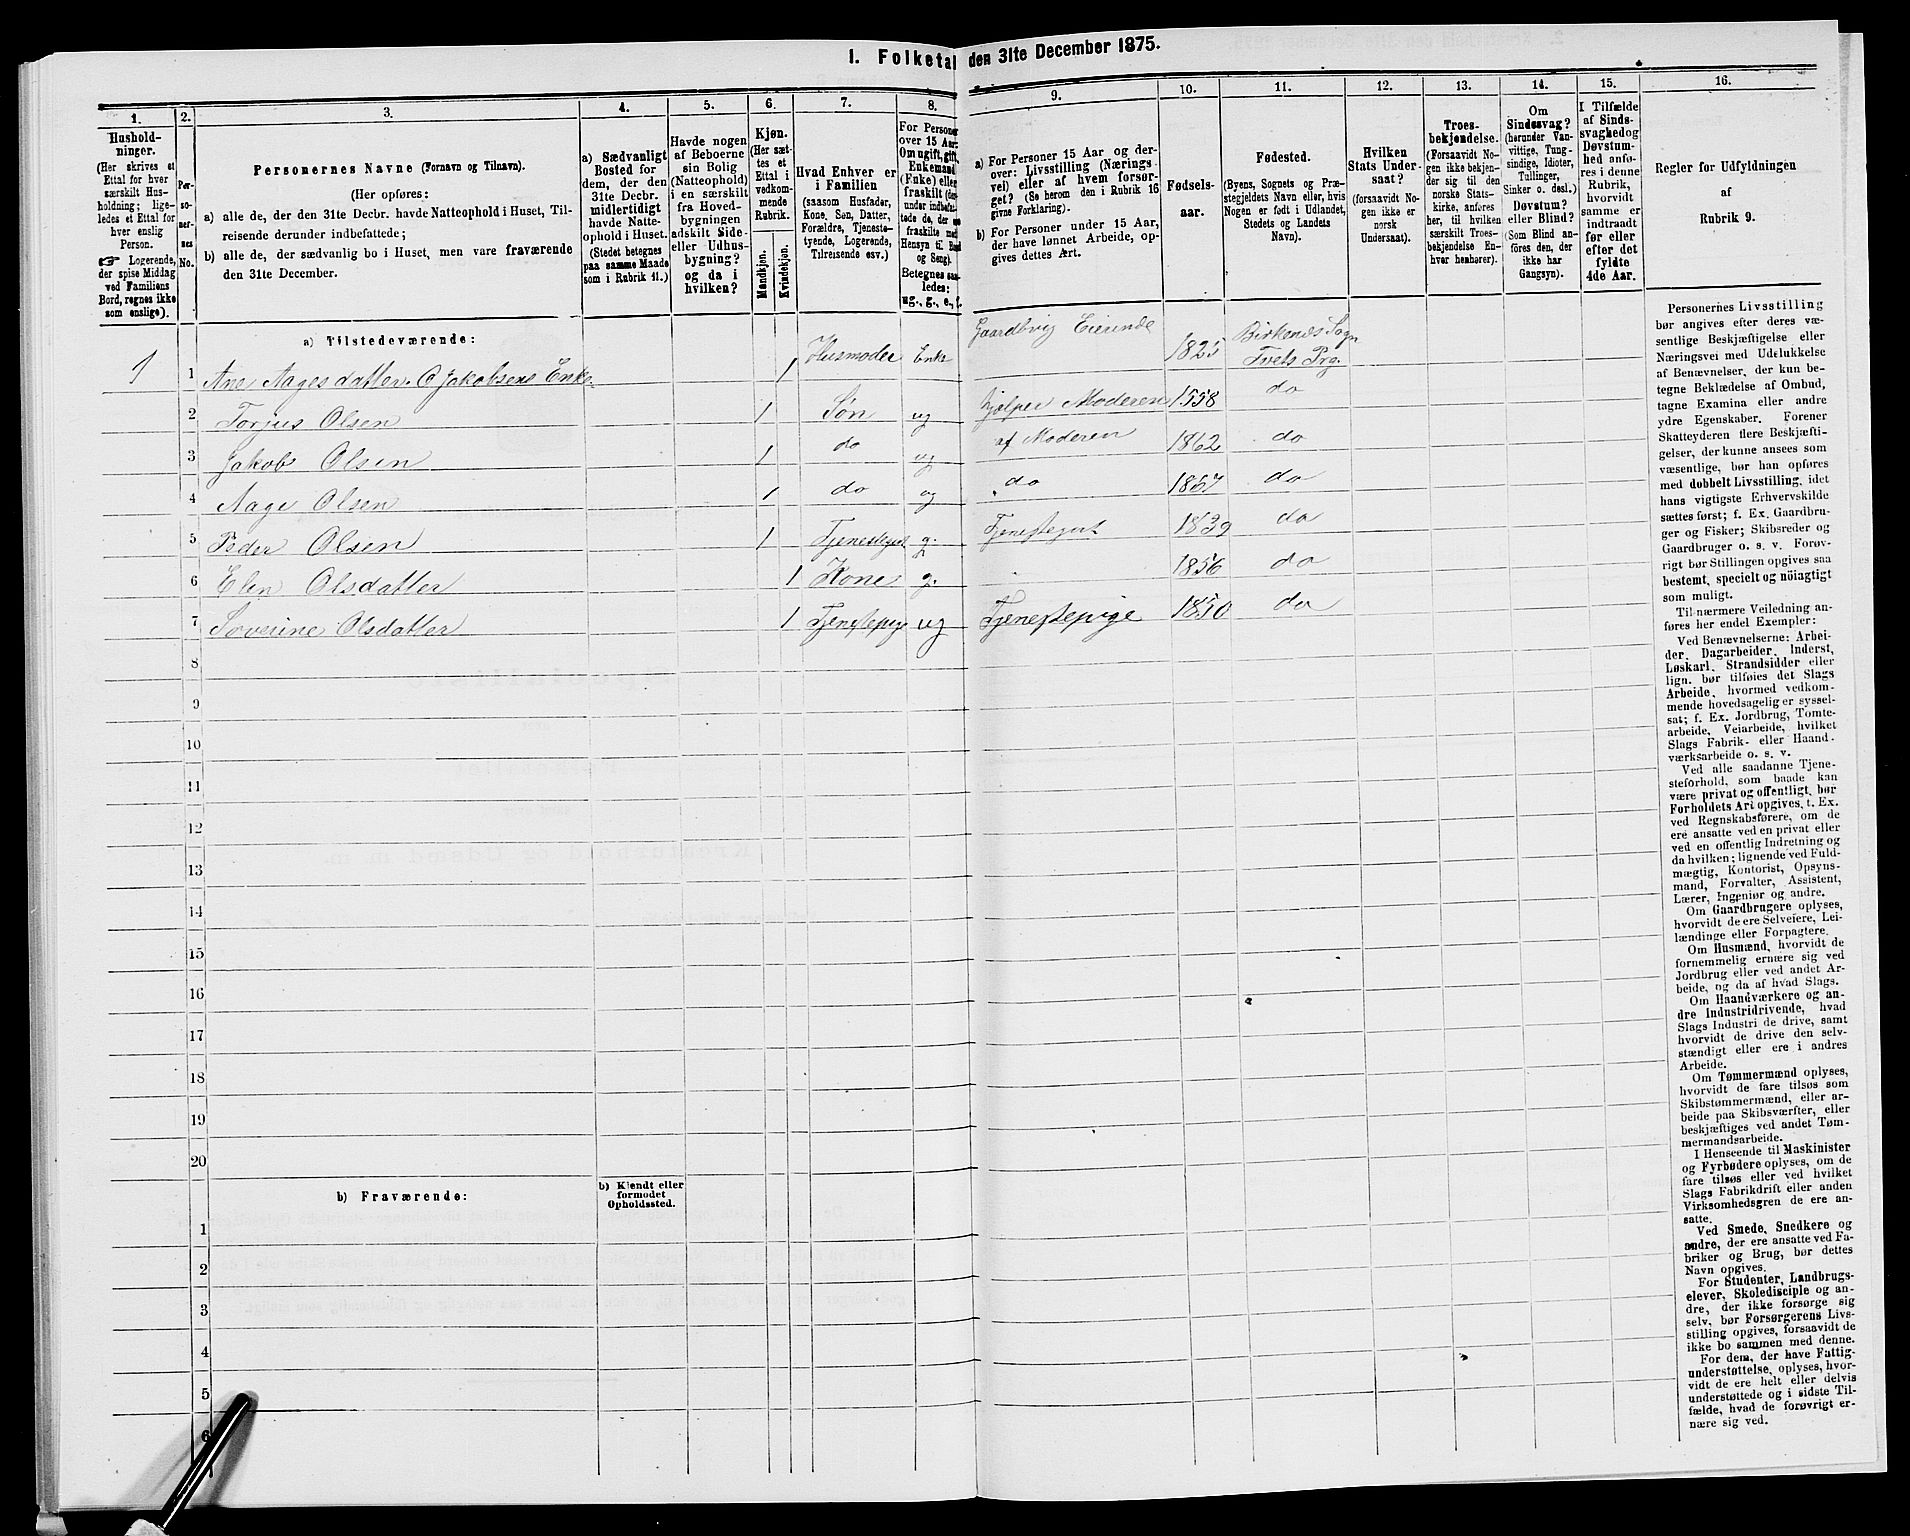 1. Folketal den 31te December 1875.
1. 2. 3. 4. 5. 6. 7. 8. 9. 10. 11. 12. 13. 14. 15. 16.
Hushold-
ninger.
(Her skrives et
Ettal for hver
særskilt Hus-
holdning; lige-
ledes et Ettal for
hver enslig
Person.
☞ Logerende,
der spise Middag
ved Familiens
Bord, regnes ikke
som enslige).
Per-
so-
ner-
nes
No.
Personernes Navne (Fornavn og Tilnavn).
(Her opføres:
a) alle de, der den 31te Decbr. havde Natteophold i Huset, Til-
reisende derunder indbefattede;
b) alle de, der sædvanlig bo i Huset, men vare fraværende
den 31te December.
a) Sædvanligt
Bosted for
dem, der den
31te Decbr.
midlertidigt
havde Natte-
ophold i Huset.
(Stedet betegnes
paa samme Maade
som i Rubrik 11.)
Havde nogen
af Beboerne
sin Bolig
(Natteophold)
i en særskilt
fra Hoved-
bygningen
adskilt Side-
eller Udhus-
bygning?
og da i
hvilken?
Kjøn.
(Her sæt-
tes et
Ettal i
vedkom-
mende
Rubrik.
Mandkjøn.
Kvindekjøn.
Hvad Enhver er
i Familien
(saasom Husfader,
Kone, Søn, Datter,
Forældre, Tjeneste-
tyende, Logerende,
Tilreisende osv.)
For Personer
over 15 Aar:
Om ugift, gift,
Enkemand
(Enke) eller
fraskilt (der-
under indbefat-
tede de, der ere
fraskilte med
Hensyn til Bord
og Seng).
Betegnes saa-
ledes:
ug., g., e., f.
a) For Personer 15 Aar og der-
over: Livsstilling (Nærings-
vei) eller af hvem forsør-
get? (Se herom den i Rubrik 16
givne Forklaring).
b) For Personer under 15 Aar,
der have lønnet Arbeide, op-
gives dettes Art.
Fødsels-
aar.
Fødested.
(Byens, Sognets og Præ-
stegjeldets Navn eller, hvis
Nogen er født i Udlandet,
Stedets og Landets
Navn).
Hvilken
Stats Under-
saat?
(forsaavidt No-
gen ikke er
norsk
Undersaat).
Troes-
bekjendelse.
(Forsaavidt No-
gen ikke bekjen-
der sig til den
norske Stats-
kirke, anføres
her, til hvilken
særskilt Troes-
bekjendelse En-
hver henhører).
Om
Sindssvag?
(herunder Van-
vittige, Tung-
sindige, Idioter,
Tullinger,
Sinker o. desl.)
Døvstum?
eller Blind?
(Som Blind an-
føres den, der
ikke har
Gangsyn).
I Tilfælde
af Sinds-
svaghed og
Døvstum-
hed anfø-
res i denne
Rubrik,
hvorvidt
samme er
indtraadt
før eller
efter det
fyldte
4de Aar.
Regler for Udfyldningen
af
Rubrik 9.
a) Tilstedeværende:
1 1 Ane Aagesdatter O Jakobsens Enke. 1 Husmoder Enke Gaardbrug Eierinde 1825 Birkenes Sogn
Tvets Prg.
2 Torjus Olsen 1 Søn ug hjelper Moderen 1558 do
3 Jakob Olsen 1 do ug af Moderen 1862 do
4 Aage Olsen 1 do ug do 1867 do
5 Peder Olsen 1 Tjenestegut g. Tjenestegut 1839 do
6 Elen Olsdatter 1 Kone g. 1856 do
7 Soverine Olsdatter 1 Tjenestepige ug Tjenestepige 1850 do
8
9
10
11
12
13
14
15
16
17
18
19
20
b) Fraværende:
b) Kjendt eller
formodet
Opholdssted.
1
2
3
4
5
6
Personernes Livsstilling
bør angives efter deres væ-
sentlige Beskjæftigelse eller
Næringsvei med Udelukkelse
af Benævnelser, der kun be-
tegne Beklædelse af Ombud,
tagne Examina eller andre
ydre Egenskaber. Forener
Skatteyderen flere Beskjæfti-
gelser, der kunne ansees som
væsentlige, bør han opføres
med dobbelt Livsstilling, idet
hans vigtigste Erhvervskilde
sættes først; f. Ex. Gaardbru-
ger og Fisker; Skibsreder og
Gaardbruger o. s. v. Forøv-
rigt bør Stillingen opgives saa
bestemt, specielt og nöiagtigt
som muligt.
Til nærmere Veiledning an-
føres her endel Exempler:
Ved Benævnelserne: Arbei-
der, Dagarbeider, Inderst,
Løskarl, Strandsidder eller
lign. bør tilføies det Slags
Arbeide, hvormed vedkom-
mende hovedsagelig er syssel-
sat; f. Ex. Jordbrug, Tomte-
arbeide, Veiarbeide, hvilket
Slags Fabrik- eller Haand-
værksarbeide o. s. v.
Ved alle saadanne Tjene-
steforhold, som baade kan
være privat og offentligt, bør
Forholdets Art opgives, t. Ex.
ved Regnskabsførere, om de
ere ansatte ved en privat eller
ved en offentlig Indretning og
da hvilken; lignende ved Fuld-
mægtig, Kontorist, Opsyns-
mand, Forvalter, Assistent,
Lærer, Ingeniør og andre.
Om Gaardbrugere oplyses,
hvorvidt de ere Selveiere, Lei-
lændinge eller Forpagtere.
Om Husmænd, hvorvidt de
fornemmelig ernære sig ved
Jordbrug eller ved andet Ar-
beide, og da af hvad Slags.
Om Haandværkere og an-
dre Industridrivende, hvad
Slags Industri de drive, samt
hvorvidt de drive den selv-
stændigt eller ere i andres
Arbeide.
Om Tømmermænd oplyses,
hvorvidt de fare tilsøs som
Skibstømmermænd, eller ar-
beide paa Skibsværfter, eller
beskjæftiges ved andet Tøm-
mermandsarbeide.
I Henseende til Maskinister
og Fyrbødere oplyses, om de
fare tilsøs eller ved hvilket
Slags Fabrikdrift eller anden
Virksomhedsgren de ere an-
satte.
Ved Smede, Snedkere og
andre, der ere ansatte ved Fa-
briker og Brug, bør dettes
Navn opgives.
For Studenter, Landbrugs-
elever, Skoledisciple og an-
dre, der ikke forsørge sig
selv, bør Forsørgerens Livs-
stilling opgives, forsaavidt de
ikke bo sammen med denne.
For dem, der have Fattig-
understøttelse, oplyses, hvor-
vidt de ere helt eller delvis
understøttede og i sidste Til-
fælde, hvad de forøvrigt er-
nære sig ved.